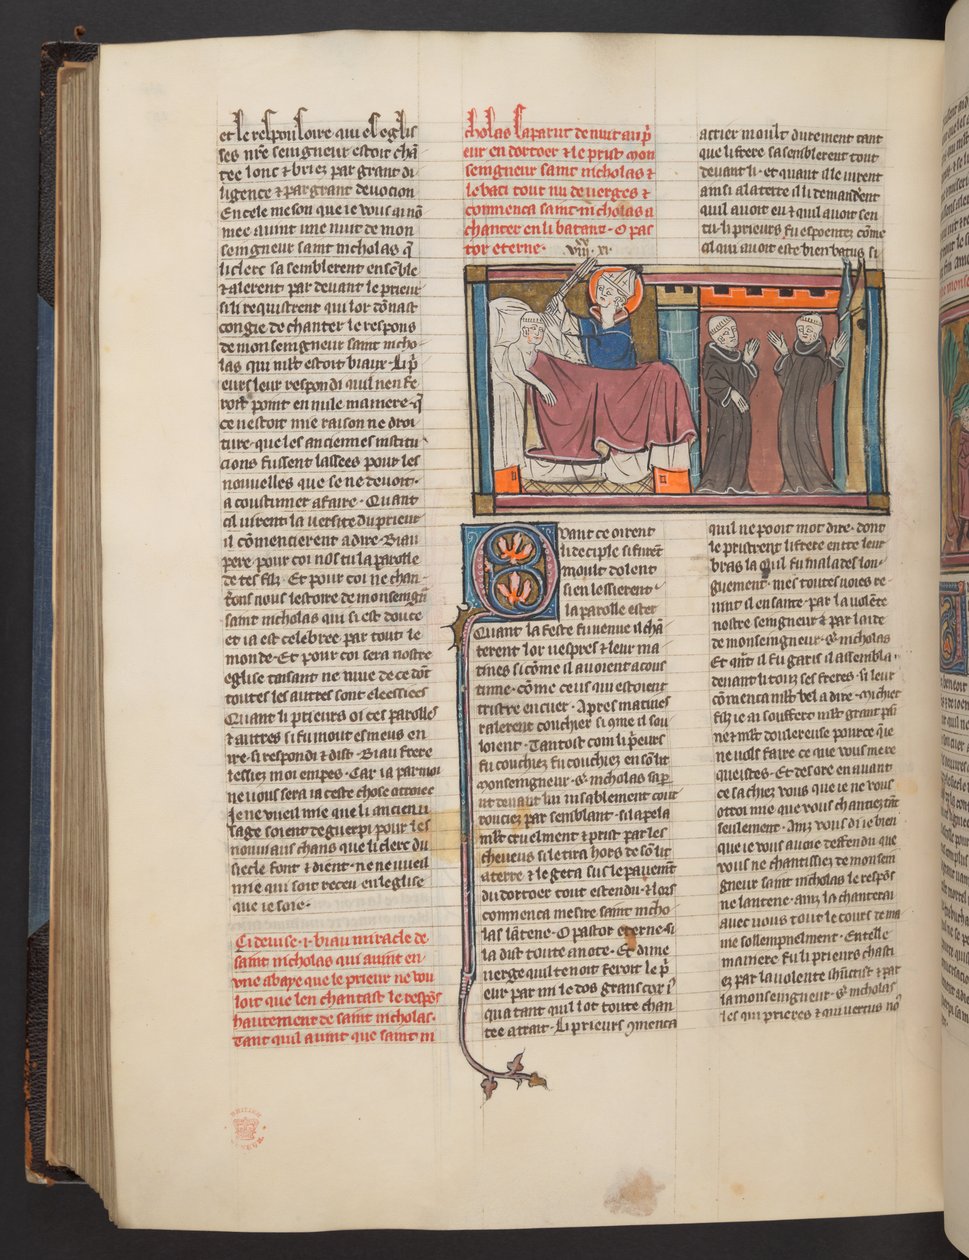 et le responsoire qui es eglis
ses nr̃e seingneur estoit chã
tee lonc & briez par grant di
ligence & par grant deuocion
En cele meson que ie vous ai nõ
mee auint une nuit de mon
seingneur saint nicholas q̃
li clerc sa semblerent ensẽble
& alerent par deuant le prieur
si li requistrent qui lor dõnast
congie de chanter le respons
de mon seingneur saint nicho
las qui mlt estoit biaux · Li p̃
eurs leur respondi quil nen fe
roit point en nule maniere · q̃
ce nestoit mie raison ne droi
ture · que les anciennes institu
cions fussent lassees pour les
nouuelles que se ne deuoit ·
a coustumer a faire · Quant
cil uirent la uersite du prieur
il cõmencierent a dire · Biau
pere pour coi nos tu la parolle
de tes filz · Et pour coi ne chan
tons nous lestoire de monseingñ
saint nicholas qui si est douce
et ia est celebree par tout le
monde · Et pour coi sera nostre
eglise taisant ne wide de ce dõt
toutes les autres sont eleessiees
Quant li prieurs oi ces parolles
& autres si fu mout esmeus en
ire · si respondi & dist · Biau frere
lessiez moi empes · Car ia par moi
ne uous sera ia ceste chose otroiee
Je ne vueil mie que li ancien u
sage soient deguerpi pour les
nouuiaus chans que li clerc du
siecle font & dient · ne ne uueil
mie qui soit receu en leglise
que ie soie ·
Ci deuise · i · biau miracle de
saint nicholas qui auint en
vne abaye que le prieur ne vou
loit que len chantast le respõs
hautement de saint nicholas ·
Tant quil auint que saint ni
cholas saparut de nuit au p̃
eur en dortoer & le prist mon
seigneur saint nicholas &
le bati tout nu de uerges &
commenca saint nicholas a
chanter en li batant · O pas
tor eterne ·
Quant ce oirent
li deciple si furẽt
moult dolent
si en lessierent
la parolle ester
Quant la feste fu uenue il chã
terent lor uespres & leur ma
tines si cõme il auoient acous
tume · cõme ceus qui estoient
tristre en cuer · Apres matines
ralerent couchier si cõme il sou
loient · Tantost com li p̃eurs
fu couchiez fu couchiez en sõ lit
monseingneur · s᷑ · nicholas sap
ut deuant lui uisablement cour
rouciez par semblant · si lapela
mlt cruelment & prist par les
cheueus si le tira hors de sõ lit
a terre & le geta sus le pauemẽt
du dortoer tout estendu · & lors
commenca mestre saint nicho
las lãtene · O pastor eterne · si
la dist toute a note · Et dune
uerge quil tenoit feroit le p̃
eur par mi le dos
qua tant quil lot toute chan
tee a trait · Li prieurs cõmenca
a crier moult durement tant
que li frere sa semblerent tout
deuant li · et quant il le uirent
ainsi a la terre il li demandẽt
quil auoit eu & quil auoit sen
tu · li prieurs fu espoentez cõme
cil qui auoit este bien batus si
quil ne pooit mot dire · dont
le pristrent li frere entre leur
bras la ou il fu malades lon
guement · mes toutes uoies re
uint il en sante · par la uolẽte
nostre seingneur & par laide
de monseingneur · s᷑ · nicholas
Et q̃nt il fu garis il assembla
deuant li touz ses freres · si leur
cõmenca mlt bel a dire · Mi chier
filz ie ai souffert mlt grant
ne & mlt doulereuse pource que
ne uols faire ce que vous me re
queistes · Et des ore en auant
ce sachiez vous que ie ne vous
otroi mie que vous chantez tãt
seulement · Ainz vous di ie bien
que ie vous auoie deffendu que
vous ne chantissiez de monsein
gneur saint nicholas le respõs
ne lantene · ainz la chanterai
auec uous tout le cours de ma
uie sollempnelment · En telle
maniere fu li prieurs chasti
ez par la uolente ihũcrist & par
la monseingneur · s᷑ · nicholas
les qui prieres & qui uertus no⁹
BRITISH
MUSEUM